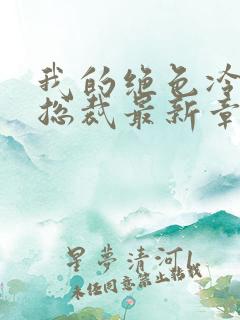 我的绝色冷
总裁最新章
星夢清河l
未经同意禁止转载